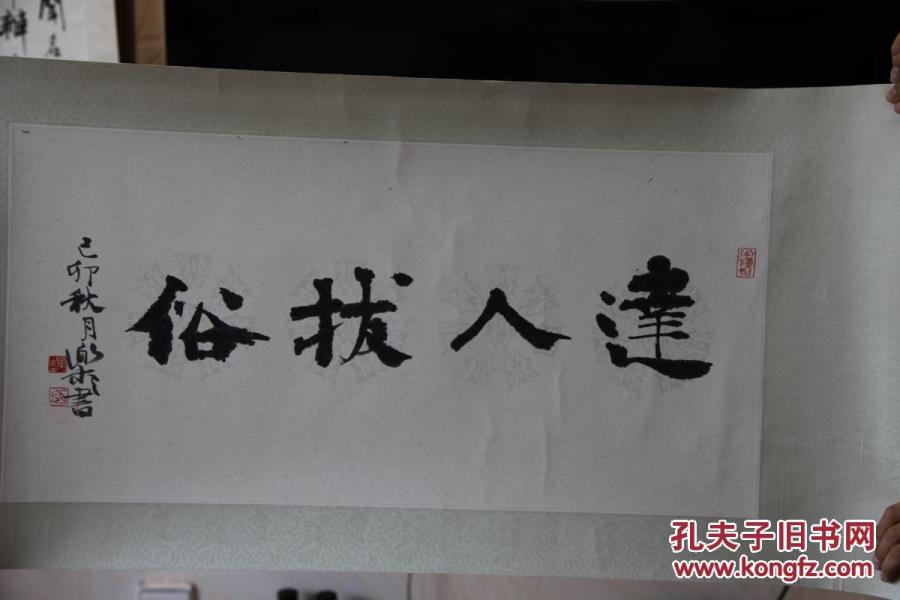 達人拔俗
己卯秋月
書
孔夫子旧书网
www.kongfz.com